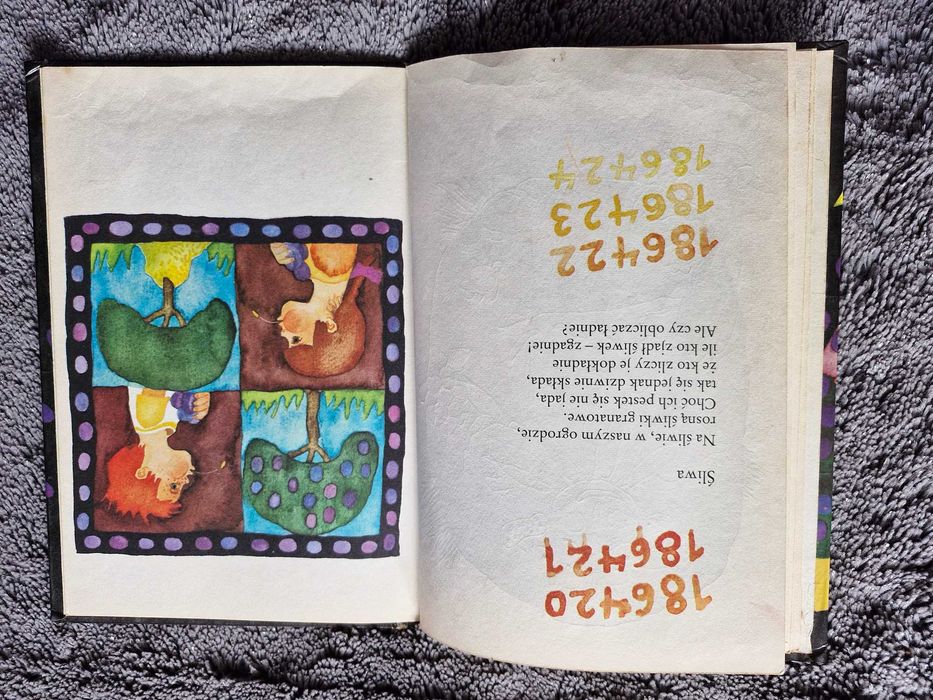 186420
186421
Śliwa
Na śliwie, w naszym ogrodzie,
rosną śliwki granatowe.
Choć ich pestek się nie jada,
tak się jednak dziwnie składa,
że kto zliczy je dokładnie
ile kto zjadł śliwek – zgadnie!
Ale czy obliczać ładnie?
186422
186423
186424